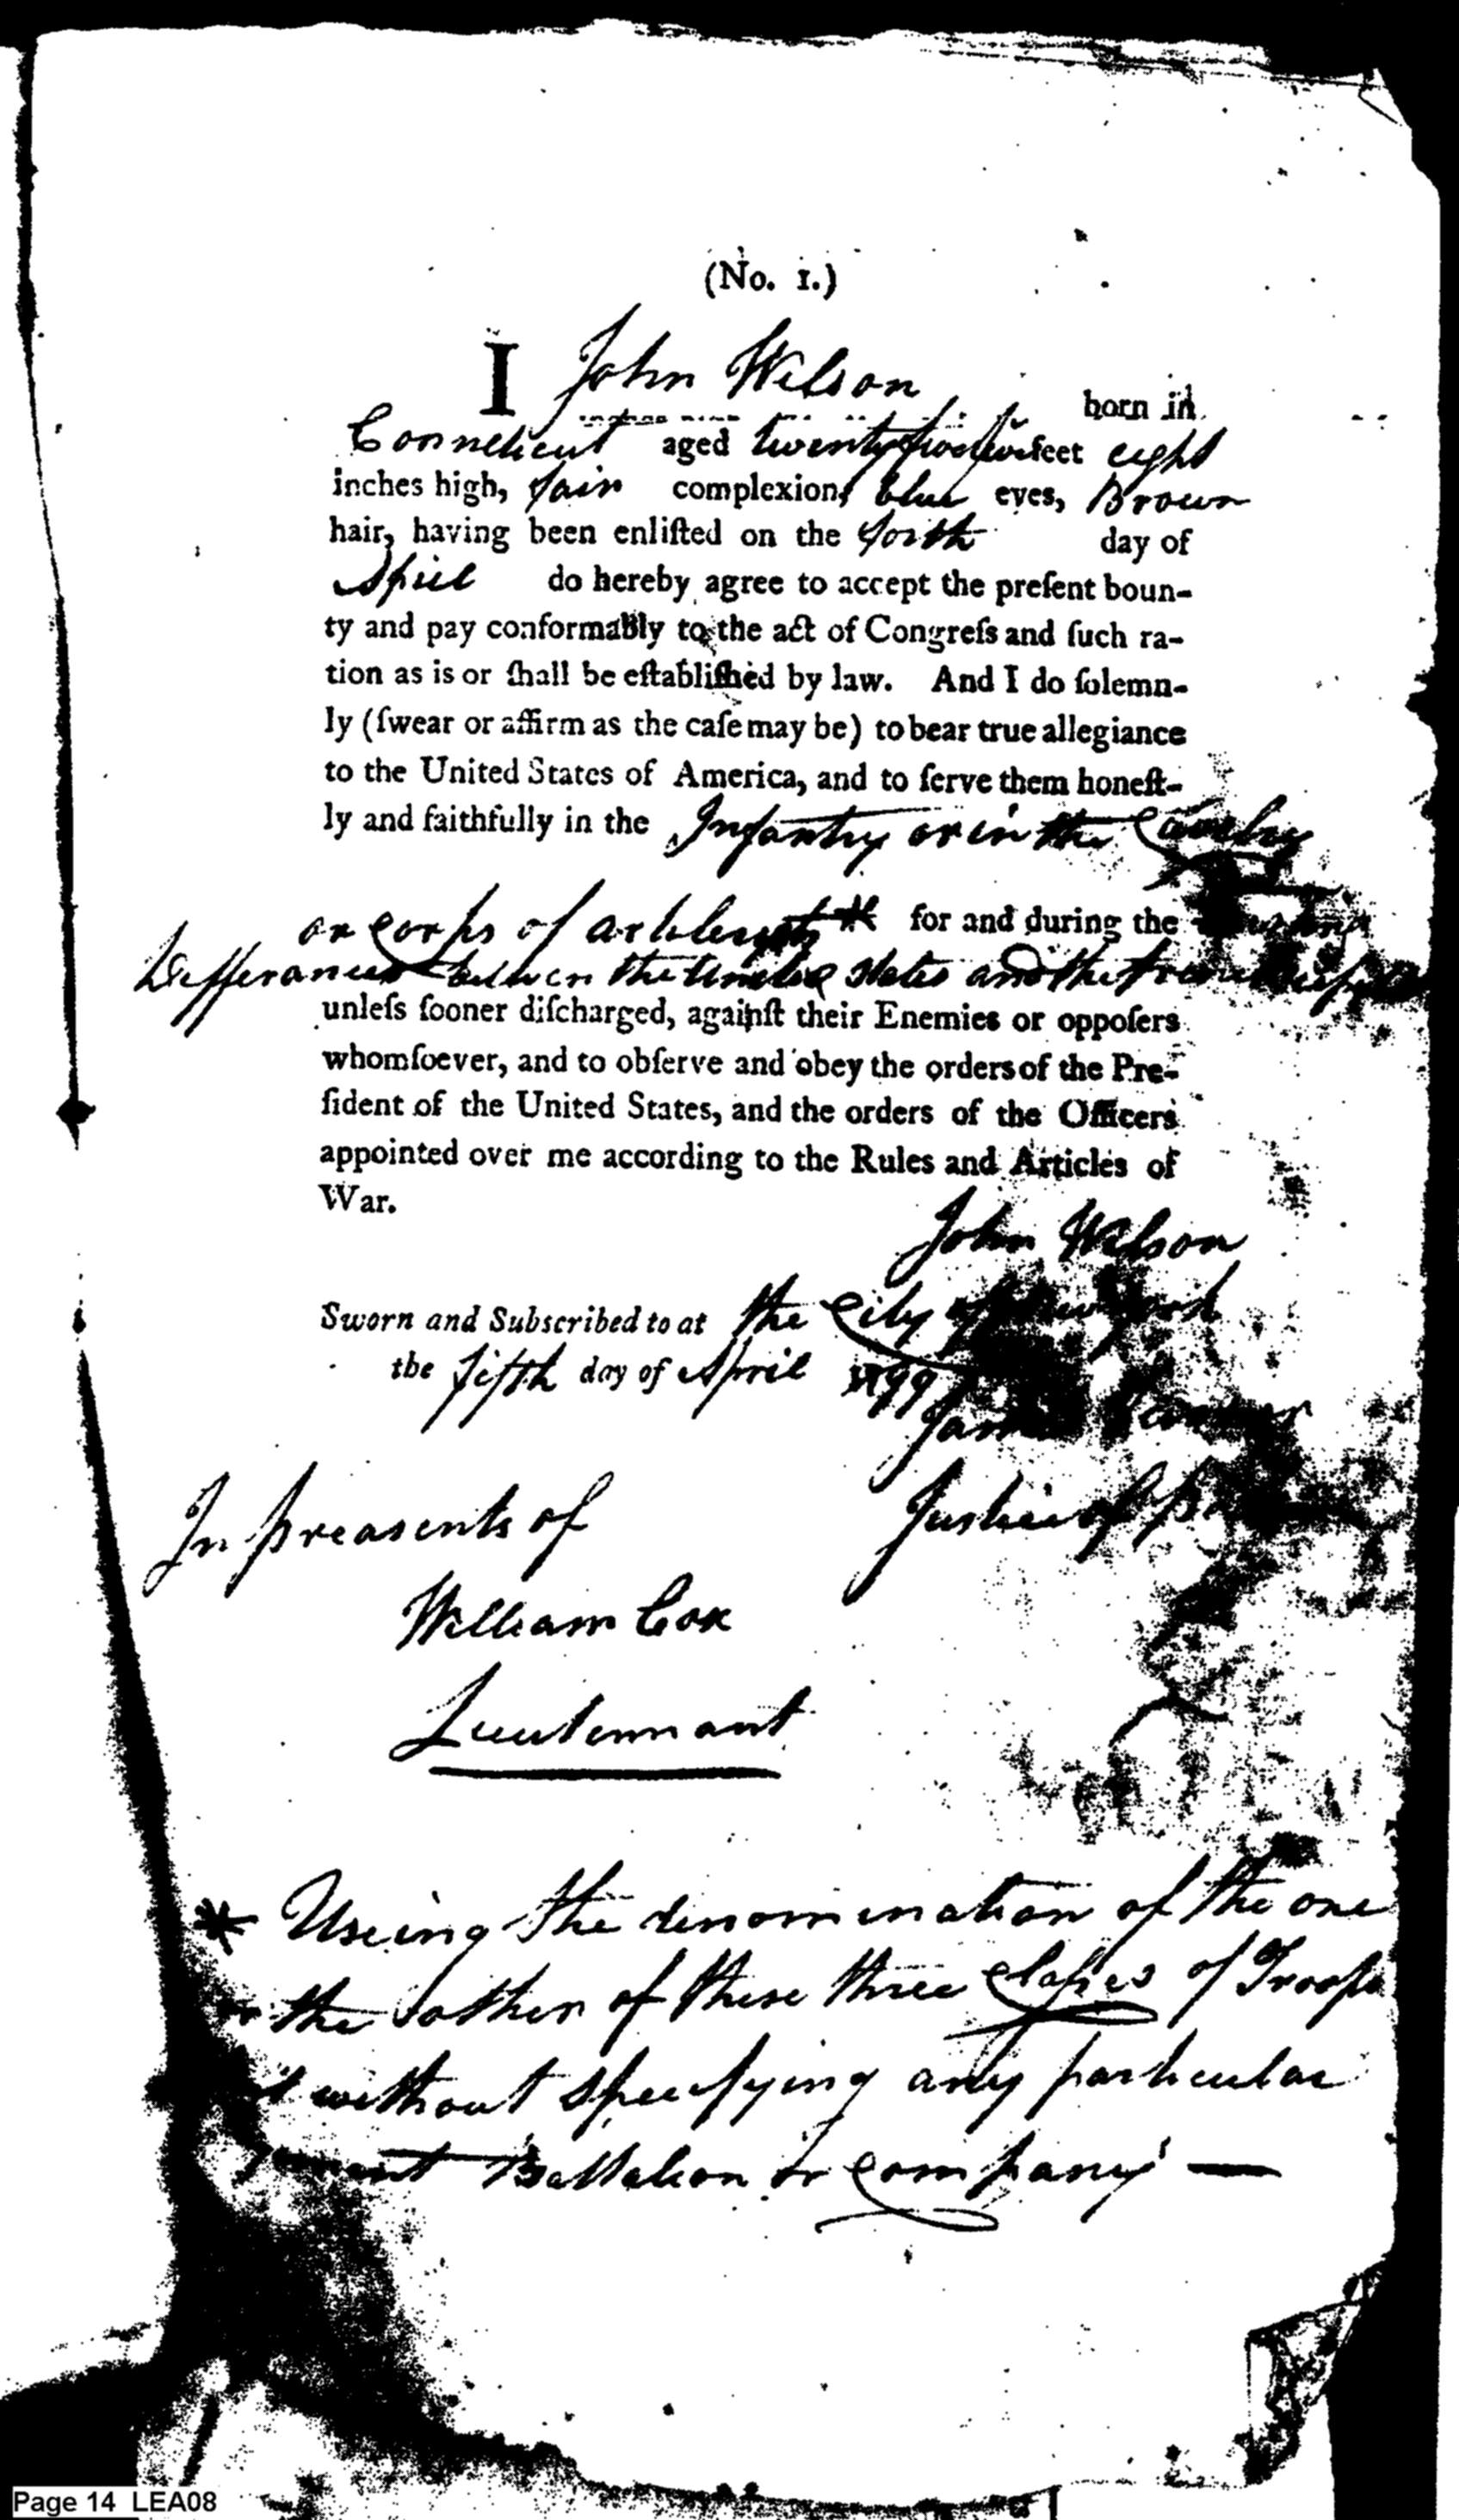 (No. 1.)
I John Wilson born in
Conneticut aged twenty five feet eight
inches high, fair complexion, blue eyes, Brown
hair, having been enliſted on the forth day of
Apriel do hereby agree to accept the preſent boun-
ty and pay conformably to the act of Congreſs and ſuch ra-
tion as is or ſhall be eſtabliſhed by law. And I do ſolemn-
ly (ſwear or affirm as the caſe may be) to bear true allegiance
to the United States of America, and to ſerve them honeſt-
ly and faithfully in the Infantry or in the Cavalry
or Corps of * for and during the
Differances between the United States and the
unleſs ſooner diſcharged, againſt their Enemies or oppoſers
whomſoever, and to obſerve and obey the orders of the Pre-
ſident of the United States, and the orders of the Officers
appointed over me according to the Rules and Articles of
War.
John Wilson
Sworn and Subscribed to at the City of New York
the fifth day of April 1799
James
Justice of
In preasents of
William Cox
Lieutennant
* Useing the denomination of the one
or the other of these three Classes of Troops
without specifying any particular
Battalion or Company —
Page 14 LEA08